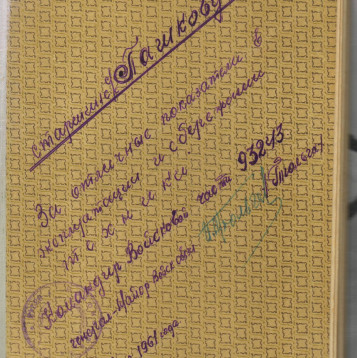 старшине Пашкову
За отличные показатели в
эксплуатации и сбережении
техники
Командир Войсковой части 93243
генерал-майор войск связи
1961 года